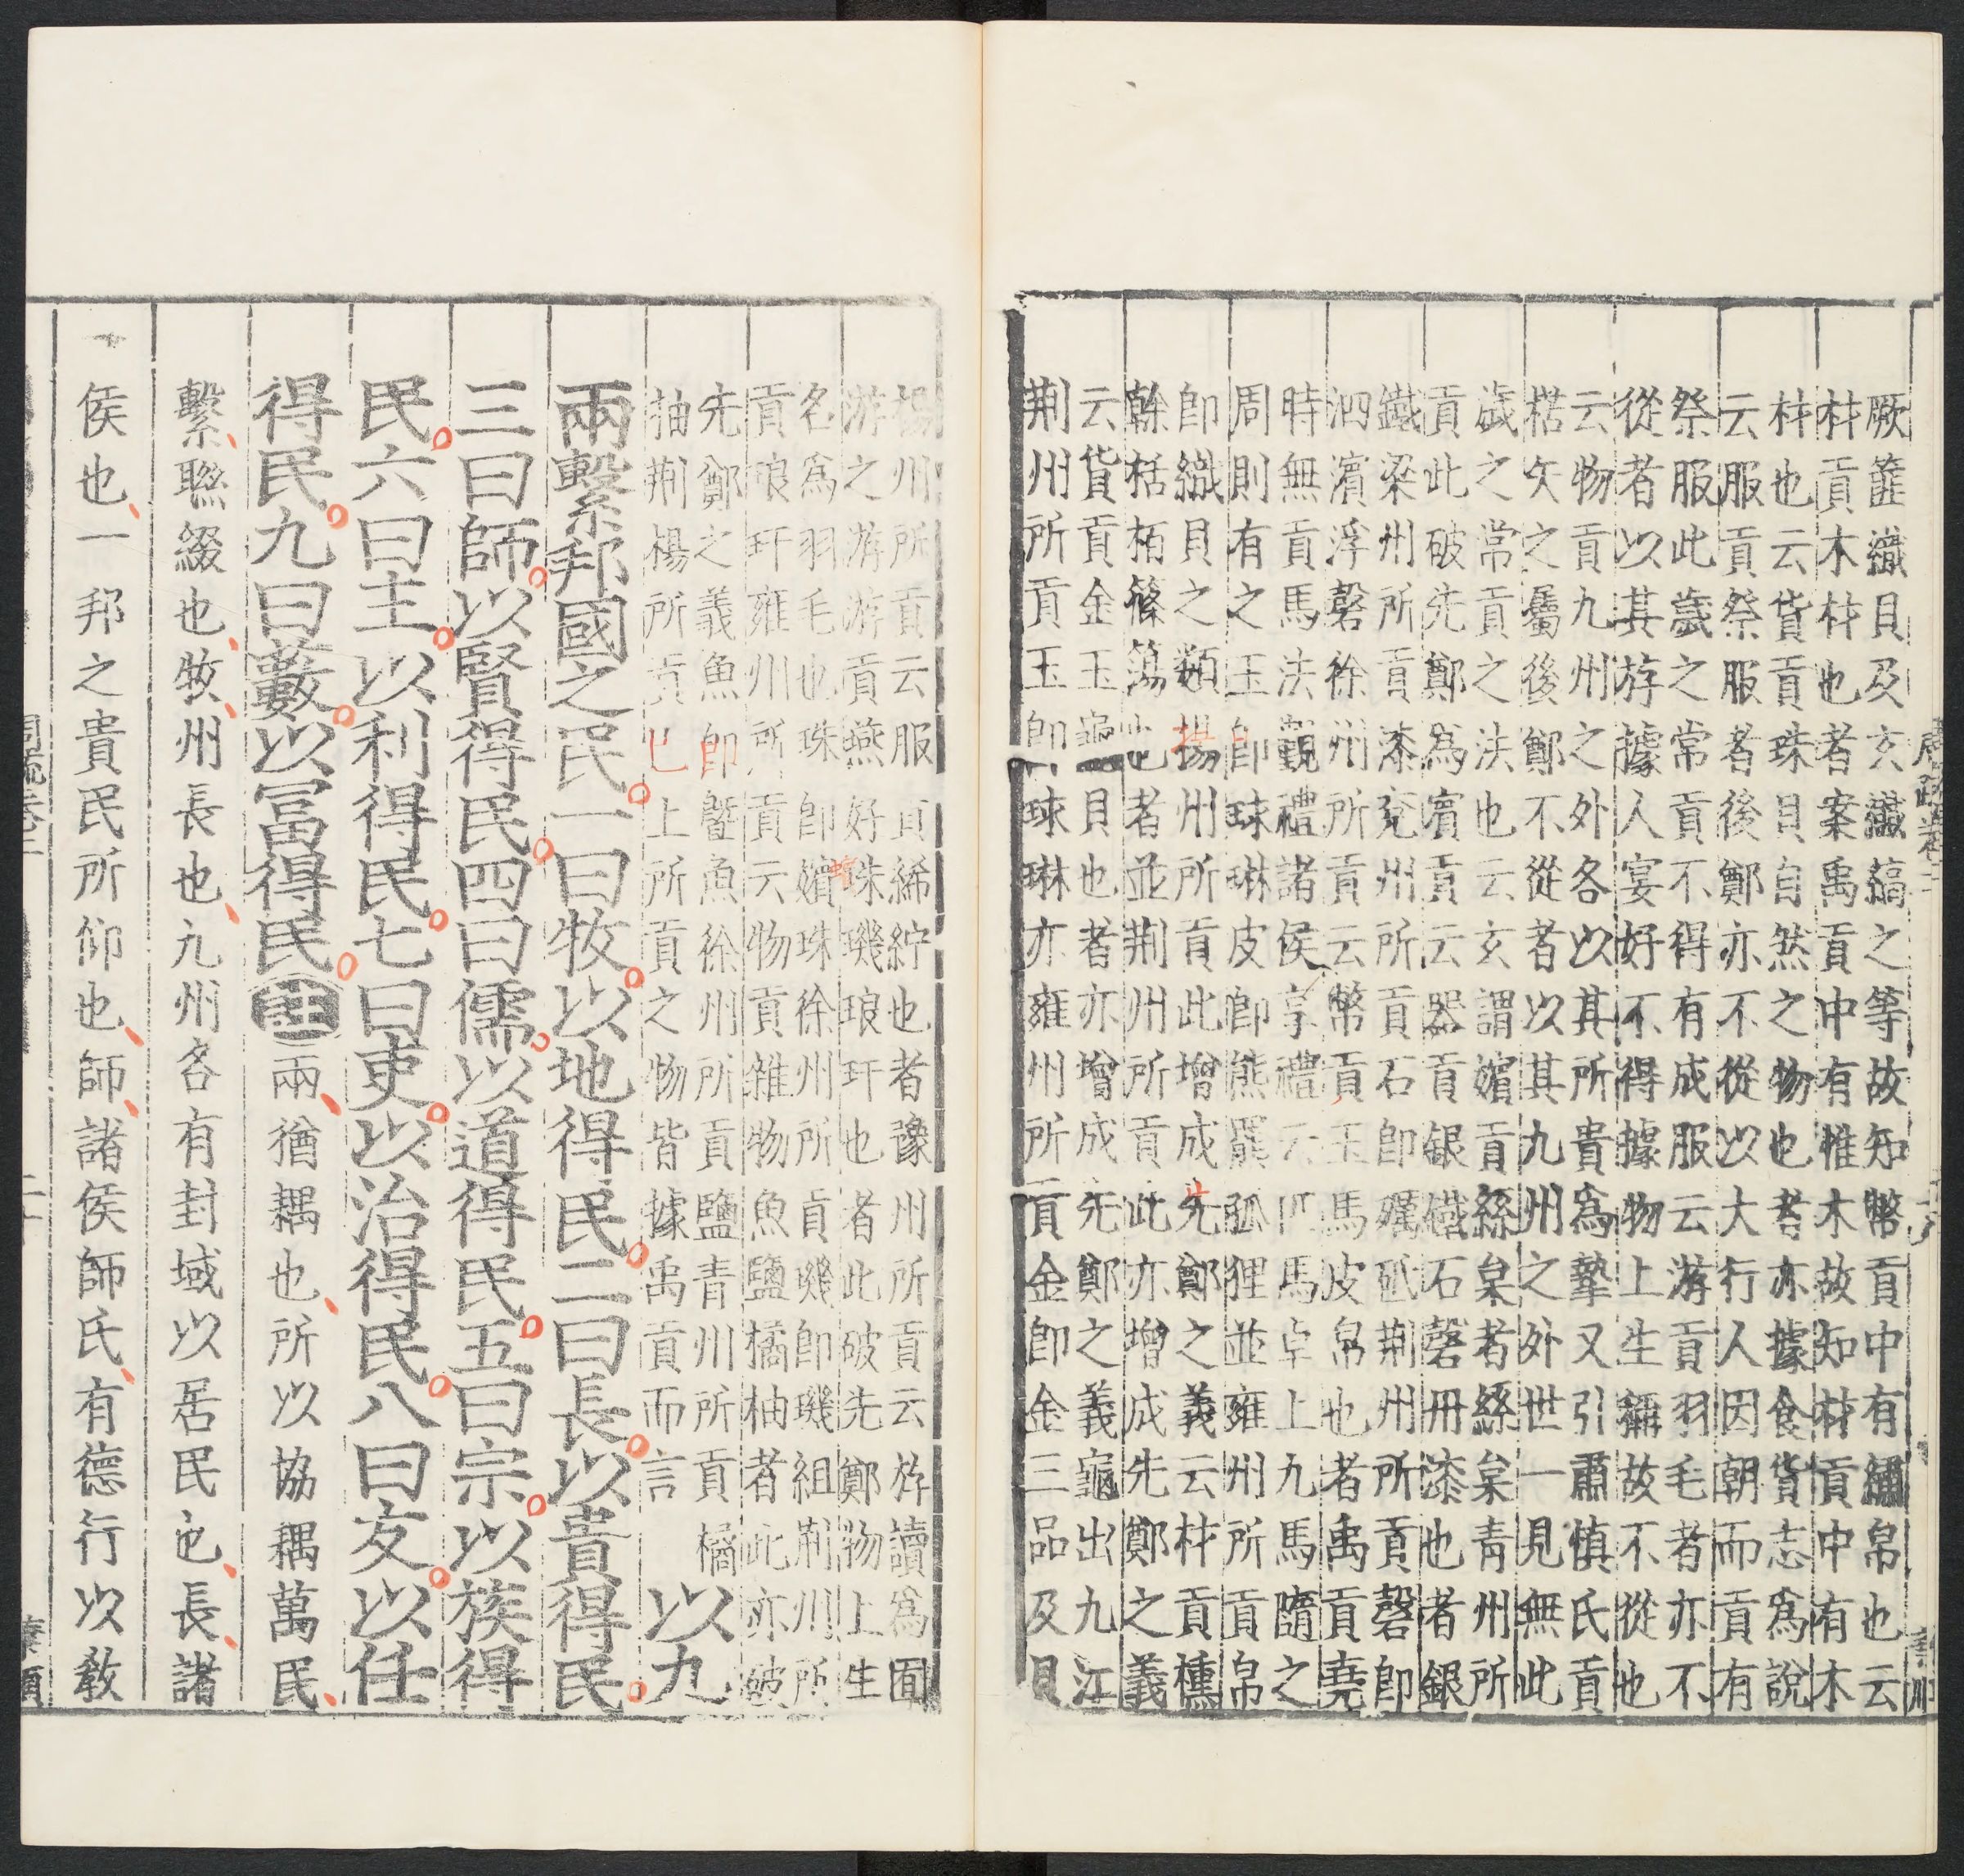 厥篚纖貝及玄纖縞之等故知幣貢中有繡帛也云
材貢木材也者案禹貢中有惟木故知材貢中有木
材也云貨貢珠貝自然之物也者亦據食貨志爲說
云服貢祭服者後鄭亦不從以大行人因朝而貢有
祭服此歲之常貢不得有成服云游貢羽毛者亦不
從者以其斿據人宴好不得據物上生稱故不從也
云物貢九州之外各以其所貴爲摯又引肅愼氏貢
楛矢之屬後鄭不從者以其九州之外世一見無此
歲之常貢之法也云玄謂嬪貢絲枲者絲枲青州所
貢此破先鄭爲賓貢云器貢銀鐵石磬丹漆也者銀
鐵梁州所貢漆兖州所貢石卽礪砥荆州所貢磬卽
泗濱浮磬徐州所貢云幣貢玉馬皮帛也者禹貢堯
時無貢馬法覲禮諸侯享禮云匹馬卓上九馬隨之
周則有之玉卽球琳皮卽熊羆狐狸並雍州所貢帛
卽織貝之類揚州所貢此增成先鄭之義云材貢櫄
榦栝栢篠簜也者並荆州所貢此亦增成先鄭之義
云貨貢金玉龜貝也者亦增成先鄭之義龜出九江
荆州所貢玉卽球琳亦雍州所貢金卽金三品及貝
楊州所貢云服貢絺紵也者豫州所貢云斿讀爲囿
游之游游貢燕好珠璣琅玕也者此破先鄭物上生
名爲羽毛也珠卽蠙珠徐州所貢璣卽璣組荆州所
貢琅玕雍州所貢云物貢雜物魚鹽橘柚者此亦破
先鄭之義魚卽曁魚徐州所貢鹽青州所貢橘
柚荆楊所貢已上所貢之物皆據禹貢而言 以九
兩繫邦國之民一曰牧以地得民二曰長以貴得民
三曰師以賢得民四曰儒以道得民五曰宗以族得
民六曰主以利得民七曰吏以治得民八曰友以任
得民九曰藪以冨得民 註 兩猶耦也所以協耦萬民
繫聯綴也牧州長也九州各有封域以居民也長諸
侯也一邦之貴民所仰也師諸侯師氏有德行以敎